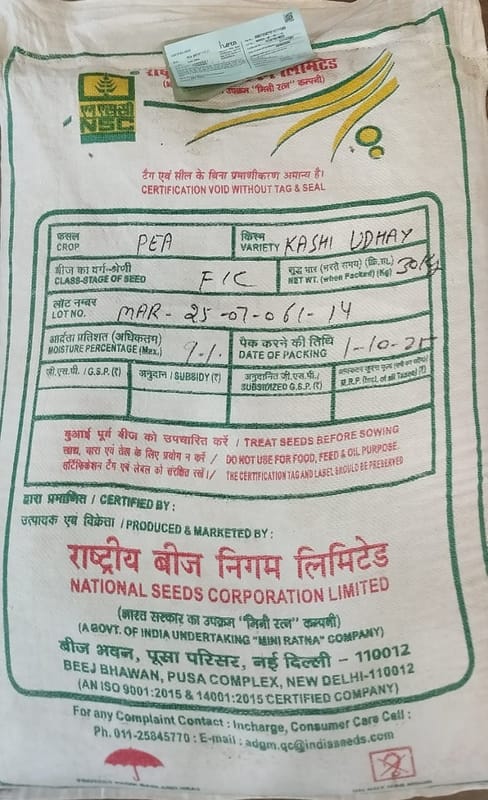 लिमिटेड
उपक्रम "मिनी रत्न" कम्पनी)
एन एस सी
NSC
टैग एवं सील के बिना प्रमाणीकरण अमान्य है।
CERTIFICATION VOID WITHOUT TAG & SEAL
फसल
CROP PEA
किस्म
VARIETY KASHI UDHAY
बीज का वर्ग-श्रेणी
CLASS-STAGE OF SEED F/C
शुद्ध भार (भरते समय) (कि.ग्रा.)
NET WT. (when Packed) (Kg) 30Kg
लॉट नम्बर
LOT NO. MAR-25-07-061-14
आर्द्रता प्रतिशत (अधिकतम)
MOISTURE PERCENTAGE (Max.) 9-1.
पैक करने की तिथि
DATE OF PACKING 1-10-25
जी.एस.पी. / G.S.P. (₹)
अनुदान / SUBSIDY (₹)
अनुदानित जी.एस.पी./
SUBSIDIZED G.S.P. (₹)
M.R.P. (Incl. of all Taxes) (₹)
बुआई पूर्व बीज को उपचारित करें / TREAT SEEDS BEFORE SOWING
खाद्य, चारा एवं तेल के लिए प्रयोग न करें / DO NOT USE FOR FOOD, FEED & OIL PURPOSE
सर्टिफिकेशन टैग एवं लेबल को संरक्षित रखें। / THE CERTIFICATION TAG AND LABEL SHOULD BE PRESERVED
द्वारा प्रमाणित / CERTIFIED BY :
उत्पादक एवं विक्रेता / PRODUCED & MARKETED BY :
राष्ट्रीय बीज निगम लिमिटेड
NATIONAL SEEDS CORPORATION LIMITED
(भारत सरकार का उपक्रम "मिनी रत्न" कम्पनी)
(A GOVT. OF INDIA UNDERTAKING "MINI RATNA" COMPANY)
बीज भवन, पूसा परिसर, नई दिल्ली - 110012
BEEJ BHAWAN, PUSA COMPLEX, NEW DELHI-110012
(AN ISO 9001:2015 & 14001:2015 CERTIFIED COMPANY)
For any Complaint Contact : Incharge, Consumer Care Cell :
Ph. 011-25845770 : E-mail : adgm.qc@indiaseeds.com